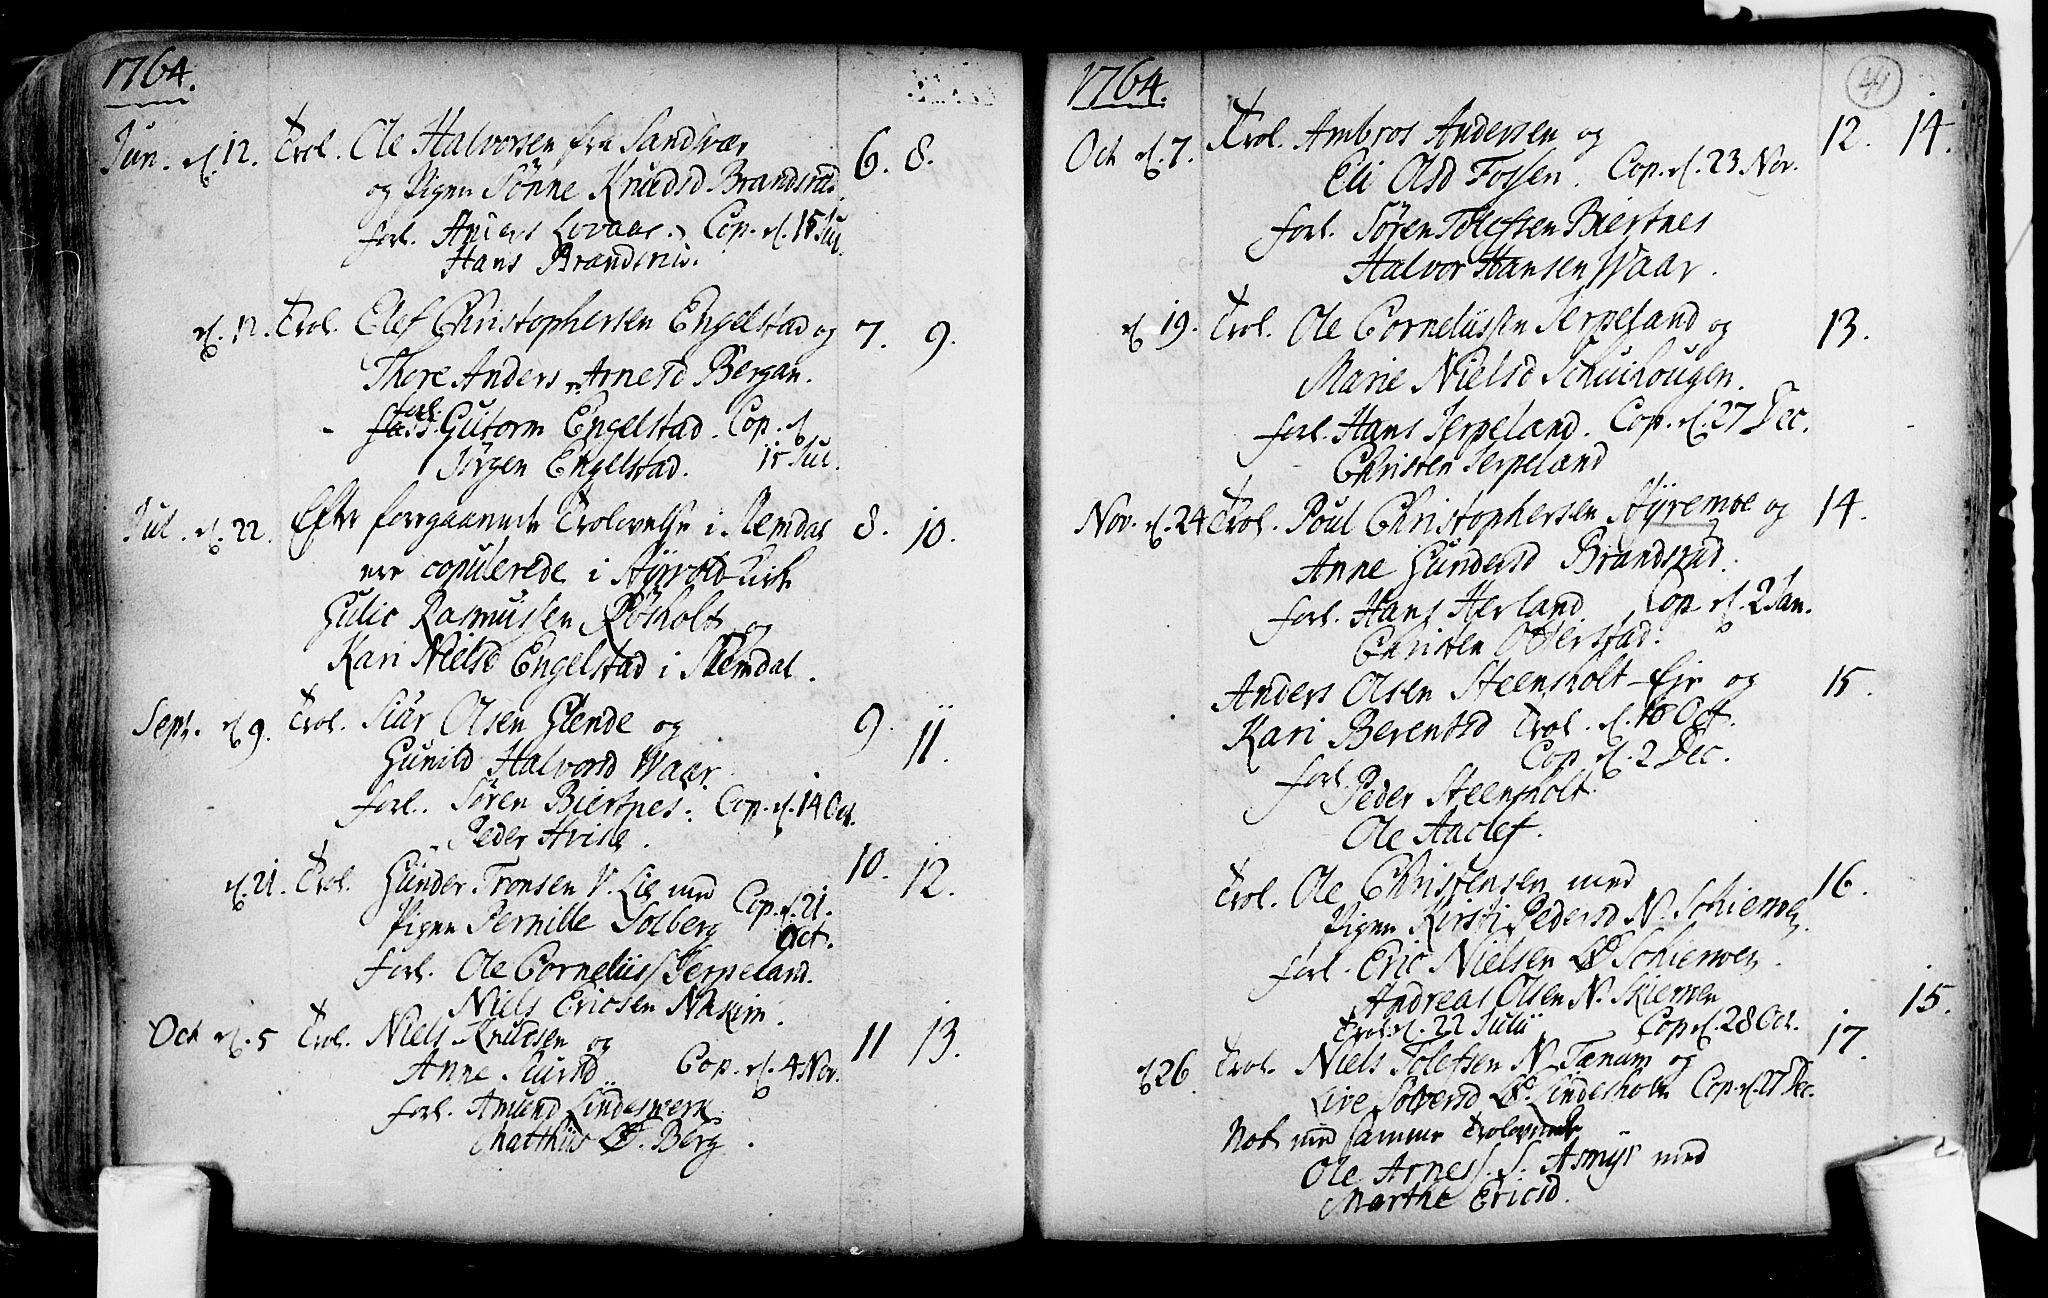 1764.
Jun. d. 12. Trol. Ole Halvorsen fra Sandsvær 6. 8.
og Pigen Sönne Knudsd Brandsrud
forl. Anders Lovaas. Cop. d. 15 Jul.
Hans Brandsrud.
d. 12. Trol. Elef Christophersen Engelstad og 7. 9.
Thore Anders Arnesd Bergan.
forl. Gutorm Engelstad. Cop. d
Jörgen Engelstad. 15 Jul.
Jul. d. 22. Efter foregaaende Trolovelse i Slemdal 8. 10.
ere copulerede i Kirke
Gulic Rasmussen Röisholt og
Kari Nielsd Engelstad i Slemdal.
Sept. d. 9. Trol. Siur Olsen Glende og 9. 11.
Gunild Halvorsd Waar.
forl. Sören Biertnes. Cop. d. 14 Oct.
Peder Hvisle.
d. 21. Trol. Gunder Tronsen V. Lie med 10. 12.
Pigen Pernille Solberg Cop. d. 21. Oct.
forl. Ole Corneliiss Jerpeland.
Niels Ericsen
Oct d. 5 Trol. Niels Knudsen og 11 13.
Anne Siursd Cop. d. 4 Nov.
forl. Amund Lindeswerk
Matthiis Berg.
1764. 41
Oct d. 7. Trol. Ambros Andersen og 12. 14.
Eli Olsd Fossen. Cop. d. 23 Nov.
forl. Sören Tolefsen Biertnes
Halvor Hansen Waar.
d 19. Trol. Ole Corneliissen Jerpeland og 13.
Marie Nielsd Schuihougen.
forl. Hans Jerpeland. Cop. d. 27 Dec.
Christen Jerpeland
Nov. d. 24 Trol. Poul Christophersen Styremoe og 14.
Anne Gundersd Brandsrud.
forl. Hans Herland Cop d. 2 Jan.
Christen Otterstad.
Anders Olsen Steensholt-Eje og 15.
Kari Berentsd Trol. d. 18 Oct.
Cop d. 2 Dec.
forl. Peder Steensholt
Ole Aaslef.
Trol. Ole Christensen med 16.
Pigen Kirsti Pedersd N. Schierven
forl. Eric Nielsen Schierven.
Andreas Olsen N. Skierven
Trol. d. 22 Julii Cop d. 28 Oct. 15.
d 26. Trol. Niels Tolefsen N. Tanum og 17.
Live Solversd Lindesholm Cop. d. 27 Dec.
Not med samme
Ole Arness. S. Asmyr med
Marthe Ericsd.